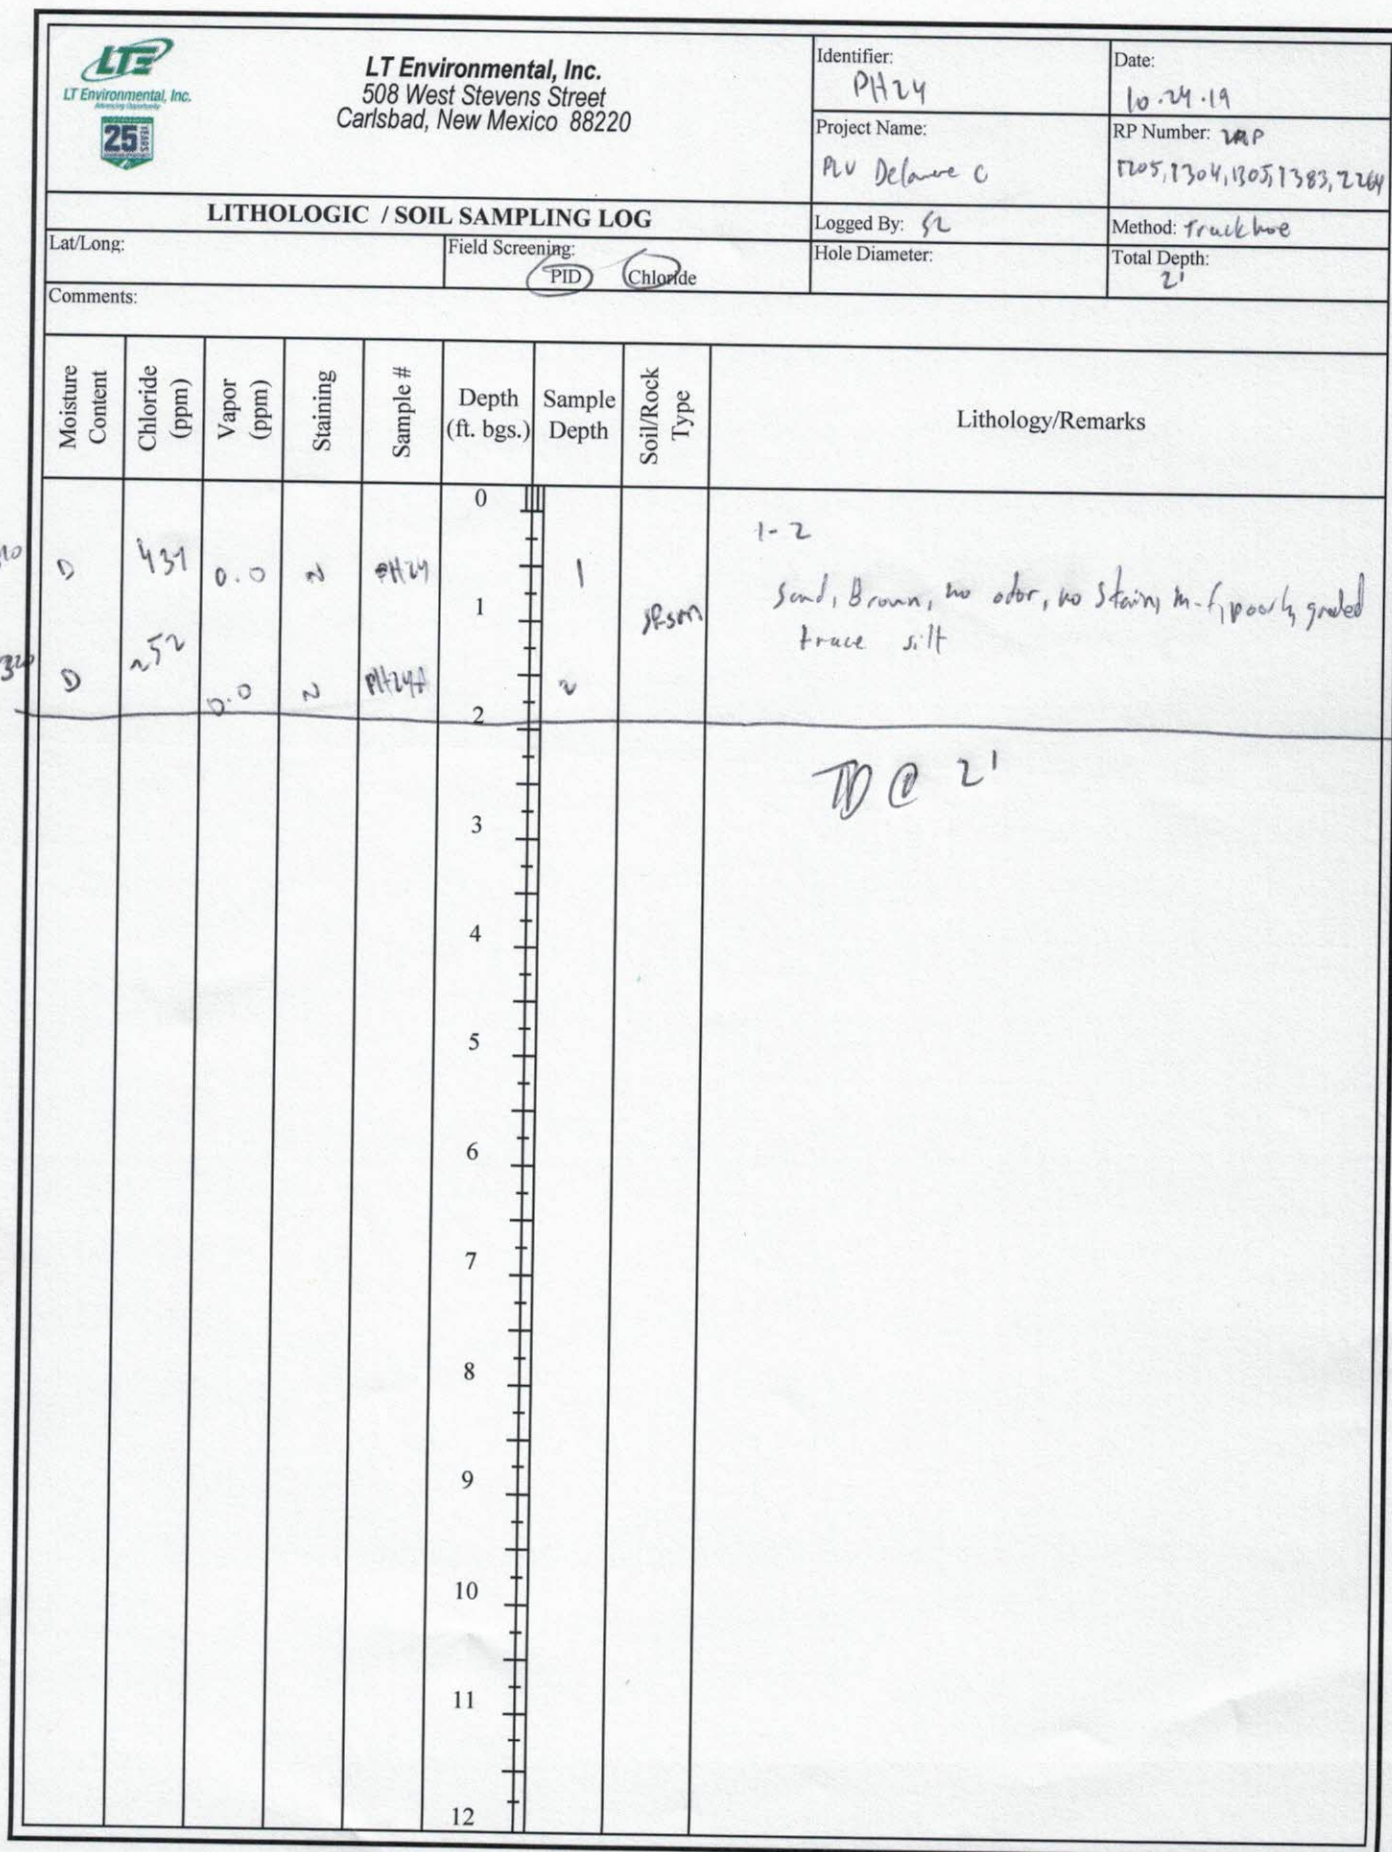 LTE
LT Environmental, Inc.
Advancing Opportunity
25 YEARS
LT Environmental, Inc.
508 West Stevens Street
Carlsbad, New Mexico 88220
Identifier:
PH24
Date:
10.24.19
Project Name:
PLU Delaware C
RP Number: 2RP
1304, 1305, 1383, 2264
LITHOLOGIC / SOIL SAMPLING LOG
Logged By:
Method: Trackhoe
Lat/Long:
Field Screening:
PID Chloride
Hole Diameter:
Total Depth:
2'
Comments:
Moisture Content
Chloride (ppm)
Vapor (ppm)
Staining
Sample #
Depth (ft. bgs.)
Sample Depth
Soil/Rock Type
Lithology/Remarks
0
1-2
D 431 0.0 N PH24 1
Sand, Brown, no odor, no stain, m-f, poorly graded
1 SP-SM
trace silt
D 0.0 N PH24A 2
2
TD @ 2'
3
4
5
6
7
8
9
10
11
12